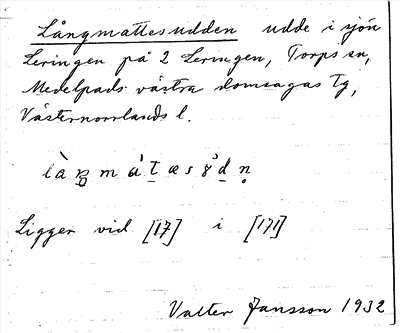 Långmattesudden udde i sjön
Leringen på 2 Leringen, Torps sn,
Medelpads västra domsagas tg,
Västernorrlands l.
Ligger vid [17] i [171]
Valter Jansson 1932